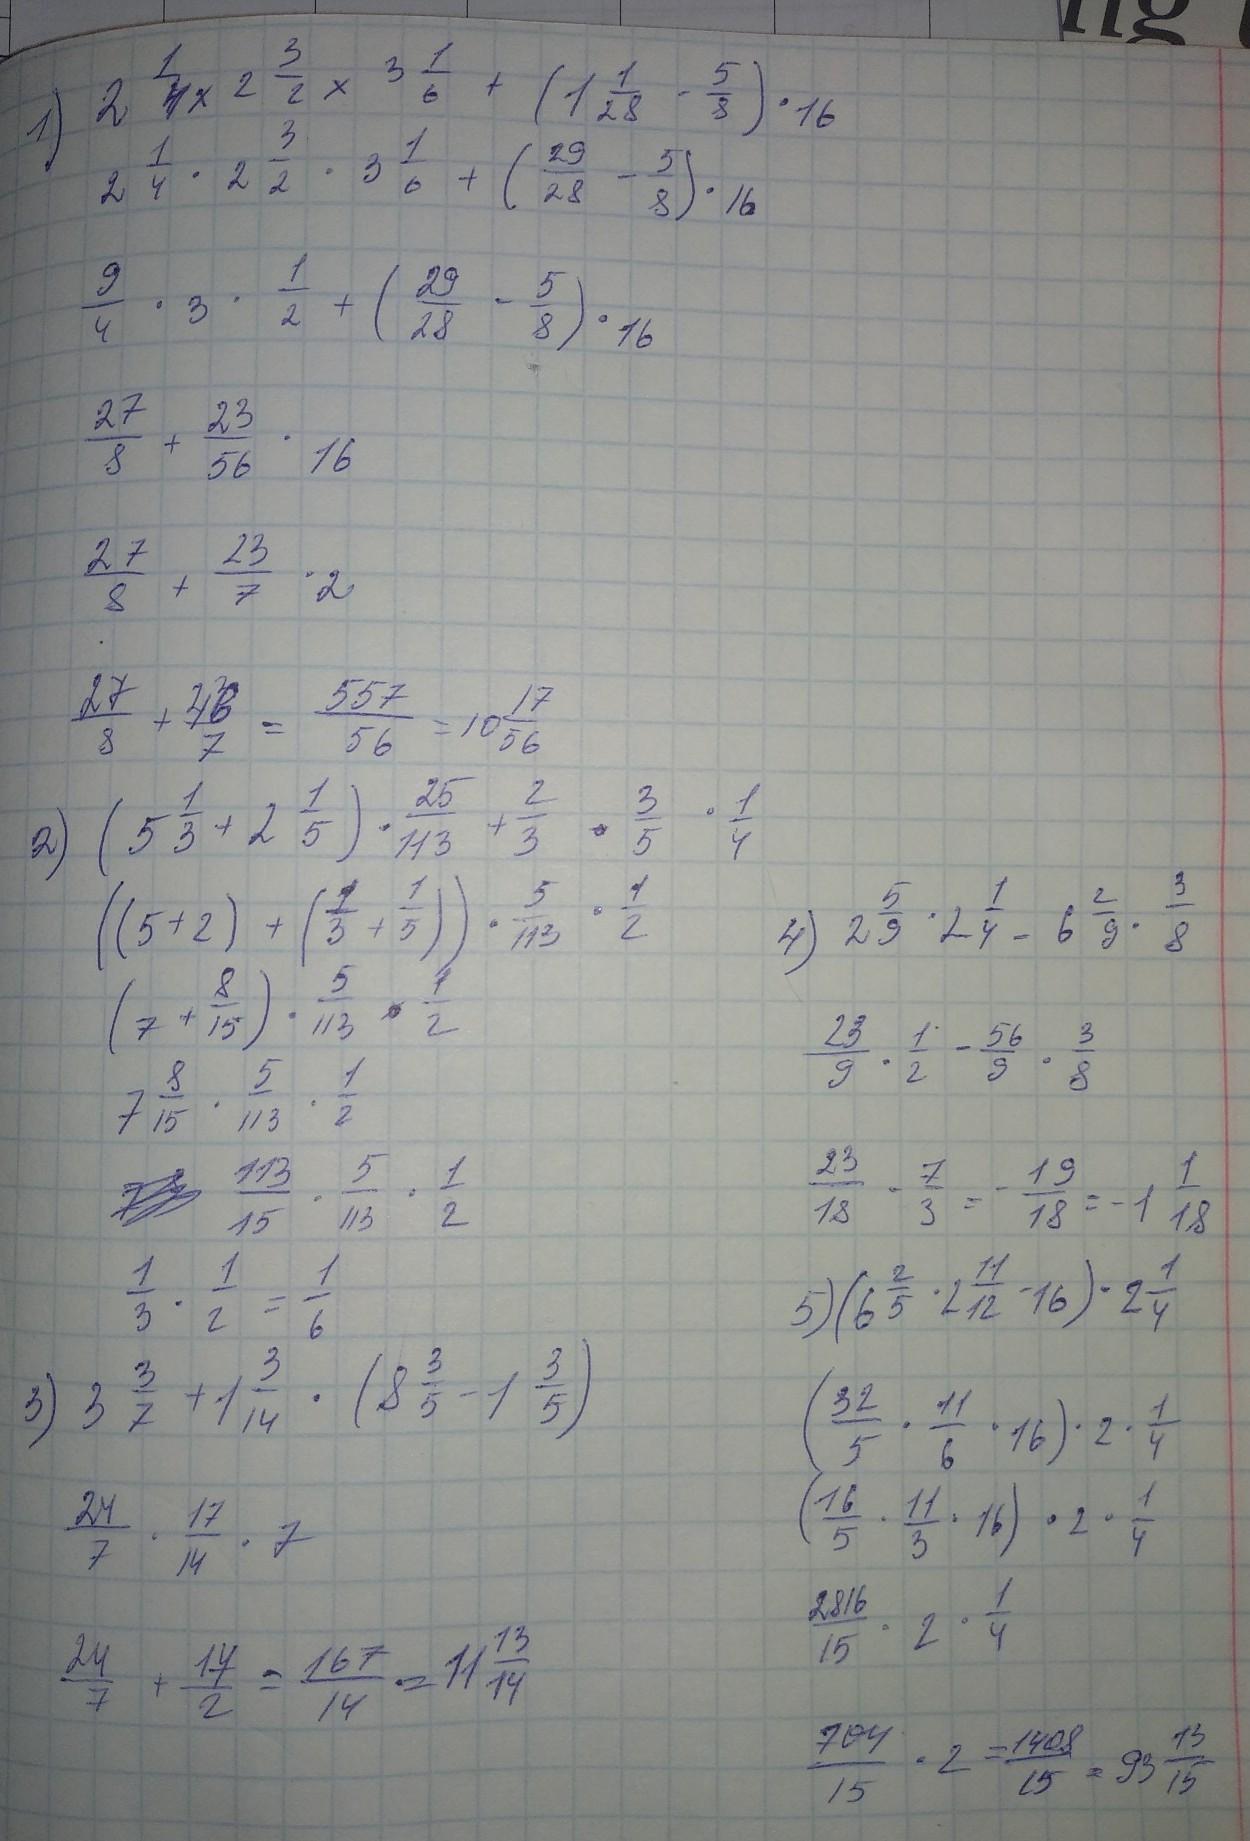 ng
1) 2 1/4 x 2 3/2 x 3 1/6 + (1 1/28 - 5/8) · 16
2 1/4 · 2 3/2 · 3 1/6 + (29/28 - 5/8) · 16
9/4 · 3 · 1/2 + (29/28 - 5/8) · 16
27/8 + 23/56 · 16
27/8 + 23/7 · 2
27/8 + 46/7 = 557/56 = 10 17/56
2) (5 1/3 + 2 1/5) · 25/113 + 2/3 · 3/5 · 1/4
((5+2) + (1/3 + 1/5)) · 5/113 · 1/2
(7 + 8/15) · 5/113 · 1/2
7 8/15 · 5/113 · 1/2
113/15 · 5/113 · 1/2
1/3 · 1/2 = 1/6
3) 3 3/7 + 1 3/14 · (8 3/5 - 1 3/5)
24/7 · 17/14 · 7
24/7 + 17/2 = 167/14 = 11 13/14
4) 2 5/9 · 2 1/4 - 6 2/9 · 3/8
23/9 · 1/2 - 56/9 · 3/8
23/18 - 7/3 = - 19/18 = -1 1/18
5) (6 2/5 · 2 11/12 - 16) · 2 1/4
(32/5 · 11/6 · 16) · 2 · 1/4
(16/5 · 11/3 · 16) · 2 · 1/4
2816/15 · 2 · 1/4
704/15 · 2 = 1408/15 = 93 13/15